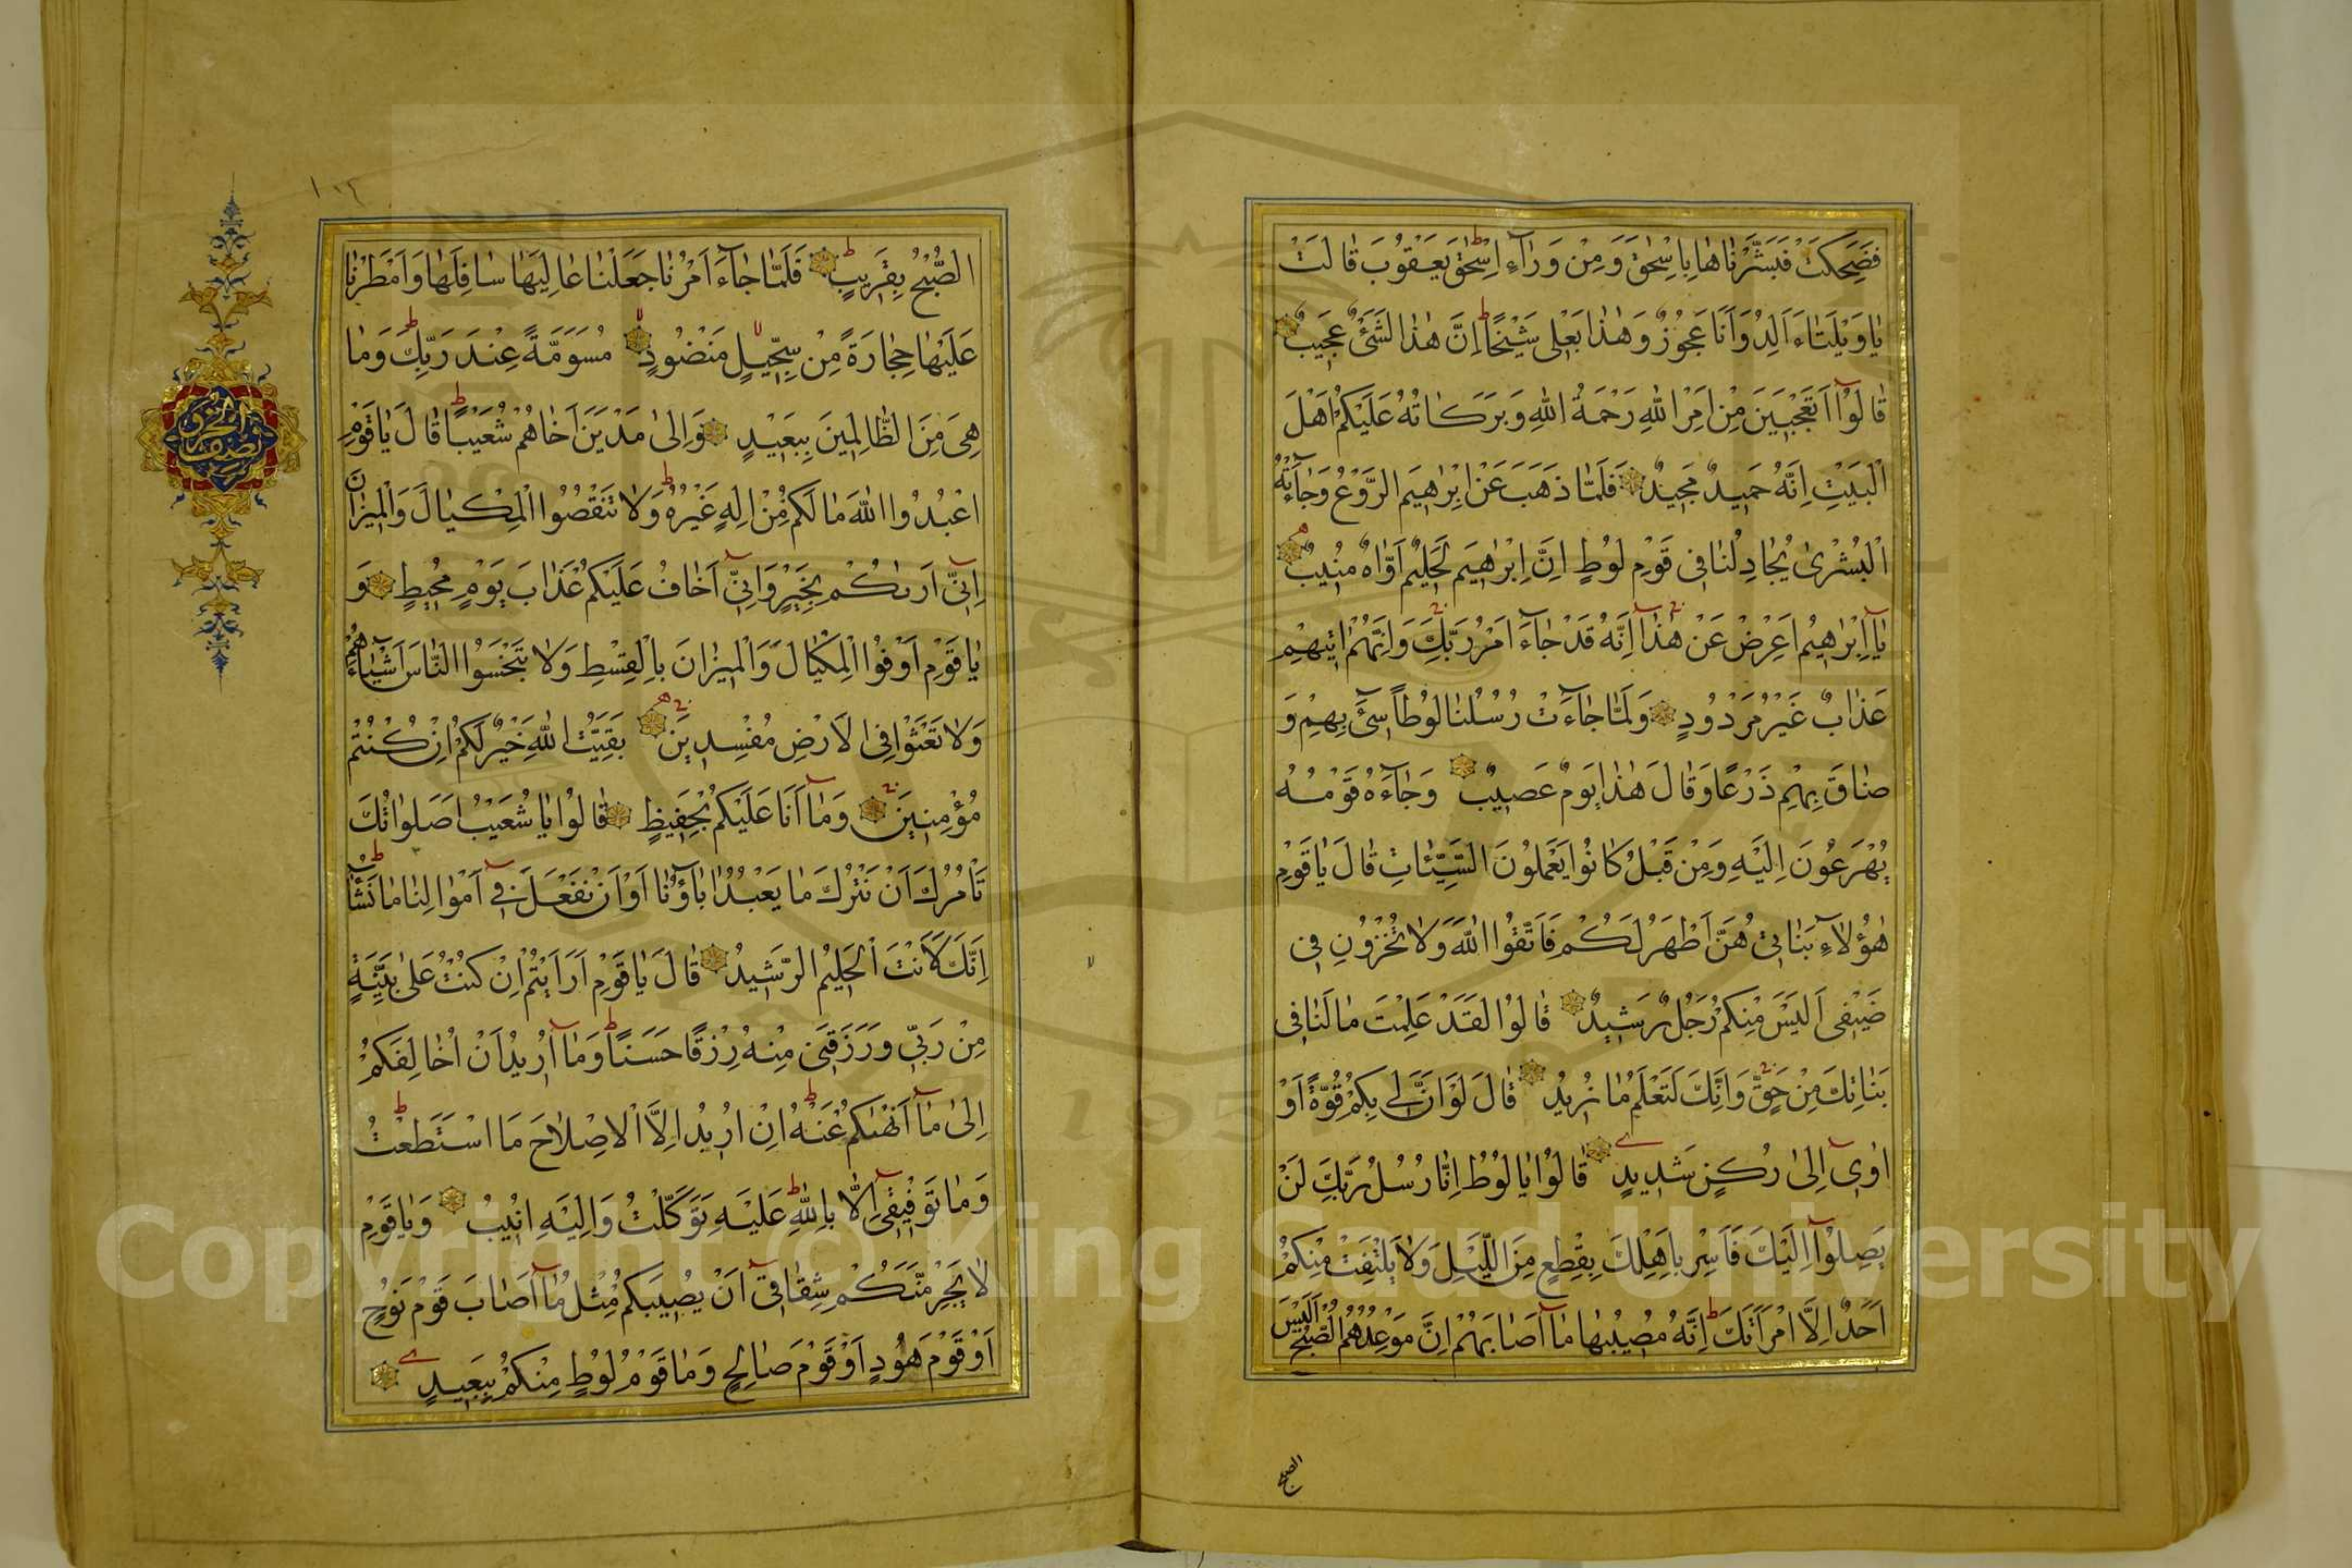 فَضَحِكَتْ فَبَشَّرْنَاهَا بِاِسْحٰقَ وَمِنْ وَرَاءِ اِسْحٰقَ يَعْقُوبَ قَالَتْ
يَا وَيْلَتَاءَ اَلِدُ وَاَنَا عَجُوزٌ وَهٰذَا بَعْلِى شَيْخًا اِنَّ هٰذَا لَشَىْءٌ عَجِيبٌ
قَالُوا اَتَعْجَبِينَ مِنْ اَمْرِ اللهِ رَحْمَةُ اللهِ وَبَرَكَاتُهُ عَلَيْكُمْ اَهْلَ
الْبَيْتِ اِنَّهُ حَمِيدٌ مَجِيدٌ فَلَمَّا ذَهَبَ عَنْ اِبْرٰهِيمَ الرَّوْعُ وَجَاءَتْهُ
الْبُشْرٰى يُجَادِلُنَا فِى قَوْمِ لُوطٍ اِنَّ اِبْرٰهِيمَ لَحَلِيمٌ اَوَّاهٌ مُنِيبٌ
يَا اِبْرٰهِيمُ اَعْرِضْ عَنْ هٰذَا اِنَّهُ قَدْ جَاءَ اَمْرُ رَبِّكَ وَاِنَّهُمْ اٰتِيهِمْ
عَذَابٌ غَيْرُ مَرْدُودٍ وَلَمَّا جَاءَتْ رُسُلُنَا لُوطًا سِىءَ بِهِمْ وَ
ضَاقَ بِهِمْ ذَرْعًا وَقَالَ هٰذَا يَوْمٌ عَصِيبٌ وَجَاءَهُ قَوْمُهُ
يُهْرَعُونَ اِلَيْهِ وَمِنْ قَبْلُ كَانُوا يَعْمَلُونَ السَّيِّئَاتِ قَالَ يَا قَوْمِ
هٰؤُلَاءِ بَنَاتِى هُنَّ اَطْهَرُ لَكُمْ فَاتَّقُوا اللهَ وَلَا تُخْزُونِ فِى
ضَيْفِى اَلَيْسَ مِنْكُمْ رَجُلٌ رَشِيدٌ قَالُوا لَقَدْ عَلِمْتَ مَا لَنَا فِى
بَنَاتِكَ مِنْ حَقٍّ وَاِنَّكَ لَتَعْلَمُ مَا نُرِيدُ قَالَ لَوْ اَنَّ لِى بِكُمْ قُوَّةً اَوْ
اٰوِى اِلٰى رُكْنٍ شَدِيدٍ قَالُوا يَا لُوطُ اِنَّا رُسُلُ رَبِّكَ لَنْ
يَصِلُوا اِلَيْكَ فَاَسْرِ بِاَهْلِكَ بِقِطْعٍ مِنَ اللَّيْلِ وَلَا يَلْتَفِتْ مِنْكُمْ
اَحَدٌ اِلَّا امْرَاَتَكَ اِنَّهُ مُصِيبُهَا مَا اَصَابَهُمْ اِنَّ مَوْعِدَهُمُ الصُّبْحُ اَلَيْسَ
الصبح
١٠٤
الصُّبْحُ بِقَرِيبٍ فَلَمَّا جَاءَ اَمْرُنَا جَعَلْنَا عَالِيَهَا سَافِلَهَا وَاَمْطَرْنَا
عَلَيْهَا حِجَارَةً مِنْ سِجِّيلٍ مَنْضُودٍ مُسَوَّمَةً عِنْدَ رَبِّكَ وَمَا
هِىَ مِنَ الظَّالِمِينَ بِبَعِيدٍ وَاِلٰى مَدْيَنَ اَخَاهُمْ شُعَيْبًا قَالَ يَا قَوْمِ
اعْبُدُوا اللهَ مَا لَكُمْ مِنْ اِلٰهٍ غَيْرُهُ وَلَا تَنْقُصُوا الْمِكْيَالَ وَالْمِيزَانَ
اِنِّى اَرٰيكُمْ بِخَيْرٍ وَاِنِّى اَخَافُ عَلَيْكُمْ عَذَابَ يَوْمٍ مُحِيطٍ وَ
يَا قَوْمِ اَوْفُوا الْمِكْيَالَ وَالْمِيزَانَ بِالْقِسْطِ وَلَا تَبْخَسُوا النَّاسَ اَشْيَاءَهُمْ
وَلَا تَعْثَوْا فِى الْاَرْضِ مُفْسِدِينَ بَقِيَّتُ اللهِ خَيْرٌ لَكُمْ اِنْ كُنْتُمْ
مُؤْمِنِينَ وَمَا اَنَا عَلَيْكُمْ بِحَفِيظٍ قَالُوا يَا شُعَيْبُ اَصَلَوَاتُكَ
تَاْمُرُكَ اَنْ نَتْرُكَ مَا يَعْبُدُ اٰبَاؤُنَا اَوْ اَنْ نَفْعَلَ فِى اَمْوَالِنَا مَا نَشَاءُ
اِنَّكَ لَاَنْتَ الْحَلِيمُ الرَّشِيدُ قَالَ يَا قَوْمِ اَرَاَيْتُمْ اِنْ كُنْتُ عَلٰى بَيِّنَةٍ
مِنْ رَبِّى وَرَزَقَنِى مِنْهُ رِزْقًا حَسَنًا وَمَا اُرِيدُ اَنْ اُخَالِفَكُمْ
اِلٰى مَا اَنْهٰيكُمْ عَنْهُ اِنْ اُرِيدُ اِلَّا الْاِصْلَاحَ مَا اسْتَطَعْتُ
وَمَا تَوْفِيقِى اِلَّا بِاللهِ عَلَيْهِ تَوَكَّلْتُ وَاِلَيْهِ اُنِيبُ وَيَا قَوْمِ
لَا يَجْرِمَنَّكُمْ شِقَاقِى اَنْ يُصِيبَكُمْ مِثْلُ مَا اَصَابَ قَوْمَ نُوحٍ
اَوْ قَوْمَ هُودٍ اَوْ قَوْمَ صَالِحٍ وَمَا قَوْمُ لُوطٍ مِنْكُمْ بِبَعِيدٍ
Copyright © King Saud University
195